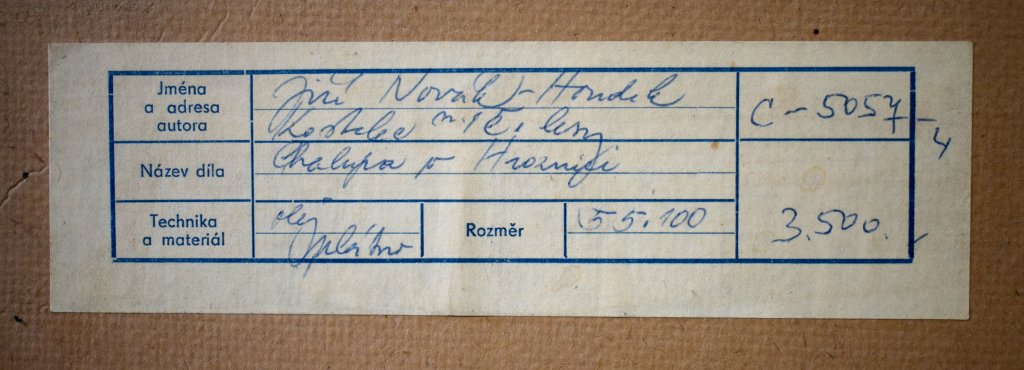 Jména
a adresa
autora
Jiří Novák - Houdek
Kostelec n. Č. lesy
C - 5057 - 4
Název díla
Chalupa v
Technika
a materiál
olej
plátno
Rozměr
55.100
3.500.